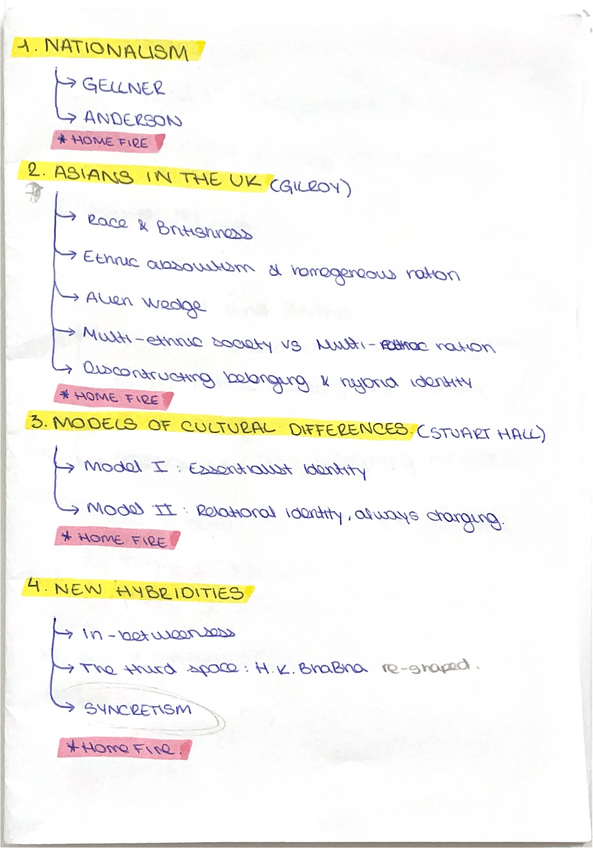 1. NATIONALISM
→ GELLNER
→ ANDERSON
* HOME FIRE
2. ASIANS IN THE UK (GILROY)
→ Race & Britishness
→ Ethnic absolutism & homogeneous nation
→ Alien wedge
→ Multi-ethnic society vs Multi- nation
→ Disconstructing belonging & hybrid identity
* HOME FIRE
3. MODELS OF CULTURAL DIFFERENCES. (STUART HALL)
→ Model I : Essentialist identity
→ Model II : Relational identity, always changing.
* HOME FIRE
4. NEW HYBRIDITIES
→ In-betweeness
→ The third space : H.K. BhaBha re-shaped.
→ SYNCRETISM
* HOME FIRE.